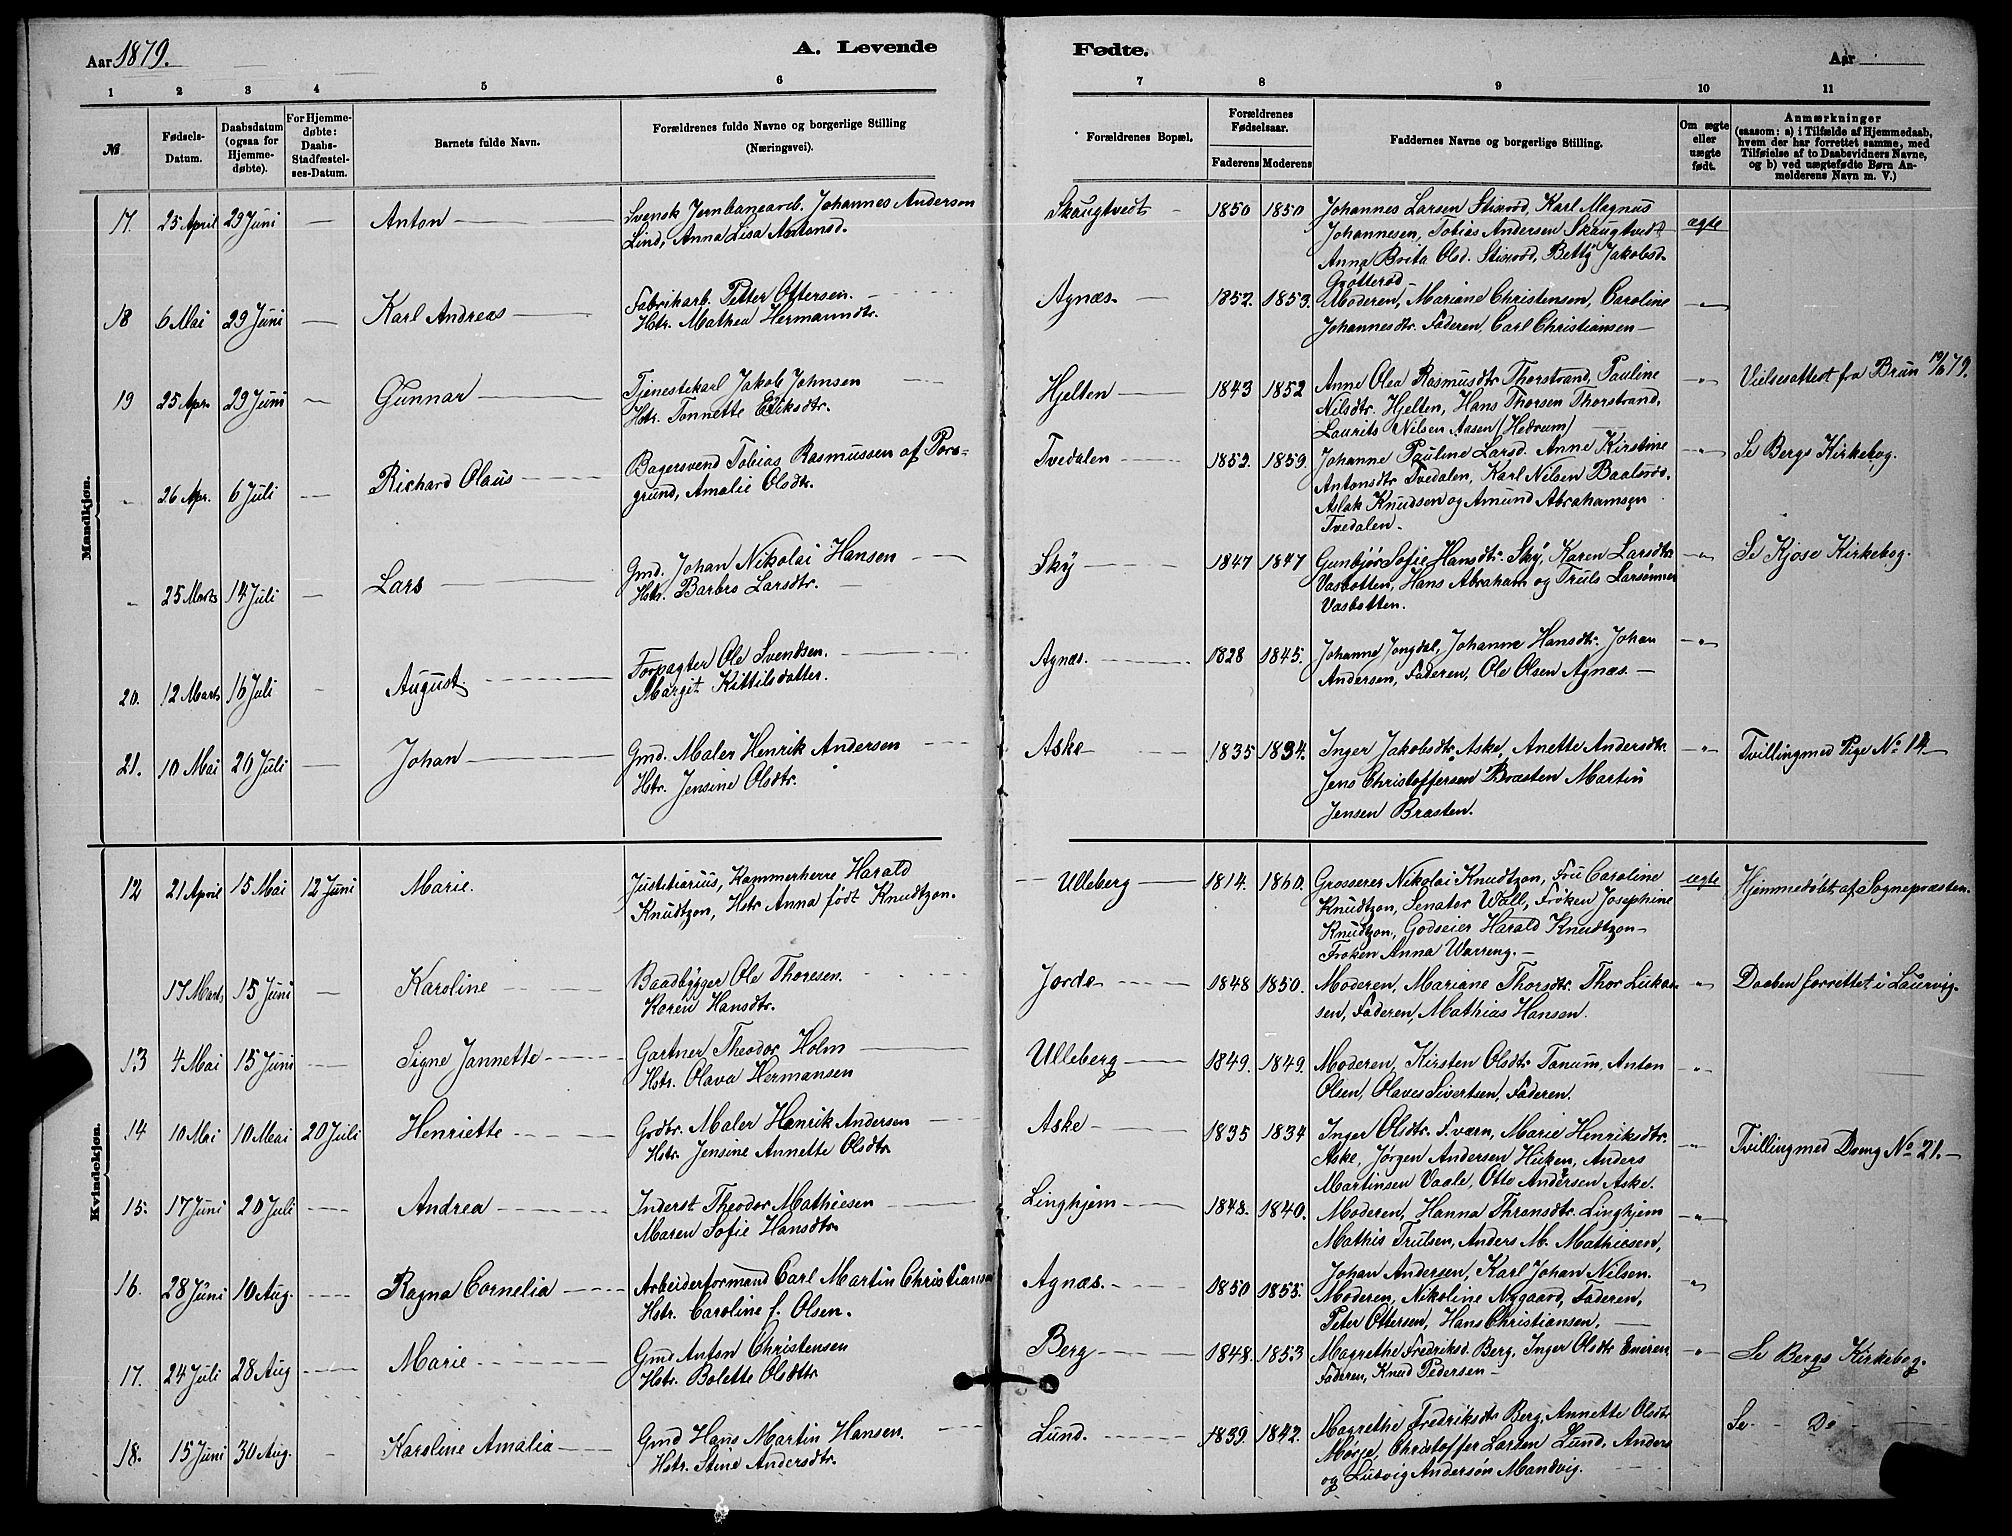 Aar 1879.
A. Levende
Fødte.
Aar
1 2 3 4 5 6 7 8 9 10 11
№
Fødsels-
Datum.
Daabsdatum
(ogsaa for
Hjemme-
døbte).
For Hjemme-
døbte:
Daabs-
Stadfæstel-
ses-Datum.
Barnets fulde Navn.
Forældrenes fulde Navne og borgerlige Stilling
(Næringsvei).
Forældrenes Bopæl.
Forældrenes
Fødselsaar.
Faderens Moderens
Faddernes Navne og borgerlige Stilling.
Om ægte
eller
uægte
født.
Anmærkninger
(saasom: a) i Tilfælde af Hjemmedaab,
hvem der har forrettet samme, med
Tilføielse af to Daabsvidners Navne,
og b) ved uægtefødte Børn An-
melderens Navn m. V.)
Mandkjøn.
17. 25 April 29 Juni — Anton
Svensk Jernbanearb. Johannes Anderson
Lind, Anna Lisa Antonsd.
Skaugtvedt 1850 1850
Johannes Larsen Stixrød, Karl Magnus
Johannesen, Tobias Andersen Skaugtvedt
Anna Brita Olsd. Stixrød, Betty Jakobsd.
Grøtterød
ægte
18 6 Mai 29 Juni — Karl Andreas
Fabrikarb. Petter Ottersen.
Hstr. Mathea Hermanndtr.
Agnæs. 1852. 1853.
Moderen, Mariane Christensen, Caroline
Johannesdtr. Faderen, Carl Christiansen —
—"—
19 25 Apr. 29 Juni — Gunnar
Tjenestekarl Jakob Johnsen
Hstr. Tonnette Eriksdtr.
Hjelten 1843 1852
Anne Olea Rasmusdtr Thorstrand, Pauline
Nilsdtr. Hjelten, Hans Thorsen Thorstrand,
Laurits Nilsen Aasen (Hedrum)
—"—
Vielsesattest fra Brun 19/6 79.
" 26 Apr. 6 Juli — Richard Olaus
Bagersvend Tobias Rasmussen af Pors-
grund, Amalie Olsdtr.
Tvedalen 1852. 1859.
Johanne Pauline Larsd. Anne Kirstine
Antonsdtr Tvedalen, Karl Nilsen Baalsrød,
Aslak Knudsen og Amund Abrahamsen
Tvedalen.
—"—
Se Bergs Kirkebog.
" 25 Marts 14 Juli — Lars
Gmd. Johan Nikolai Hansen
Hstr. Barbro Larsdtr.
Sky 1847 1847
Gunbjør Sofie Hansdtr. Sky, Karen Larsdtr
Vasbotten, Hans Abraham og Truls Larsønner
Vasbotten.
—"—
Se Kjose Kirkebog.
20. 12 Marts 16 Juli — August.
Forpagter Ole Svendsen.
Margit Kittilsdatter.
Agnæs. 1828 1845.
Johanne Jongdal, Johanne Hansdtr. Johan
Andersen, Faderen, Ole Olsen Agnæs. —
—"—
21. 10 Mai 20 Juli Johan
Gmd. Maler Henrik Andersen
Hstr. Jensine Olsdtr.
Aske 1835 1834.
Inger Jakobsdtr. Aske, Anette Andersdtr.
Jens Christoffersen Brasten Martin
Jensen Brasten.
—"—
Tvilling med Pige No 14
Kvindekjøn.
12 21 April 15 Mai 12 Juni Marie.
Justitiarius, Kammerherre Harald
Knudtzon, Hstr Anna født Knudtzon.
Ulleberg 1814. 1860.
Grosserer Nikolai Knudtzon, Fru Caroline
Knudtzon, Senator Wall, Frøken Josephine
Knudtzon, Godseier Harald Knudtzon
Frøken Anna Warreng. —
ægte
Hjemmedøbt af Sognepræsten.
17 Marts 15 Juni — Karoline
Baadbygger Ole Thoresen.
Karen Hansdtr.
Jorde 1848 1850.
Moderen, Mariane Thorsdtr. Thor Lukas-
sen, Faderen, Mathias Hansen.
—"—
Daaben forrettet i Laurvig.
13 4 Mai 15 Juni — Signe Jannette
Gartner Theodor Holm
Hstr. Olava Hermansen
Ulleberg 1849. 1849.
Moderen, Kirsten Olsdtr Tanum, Anton
Olsen, Olaves Sivertsen, Faderen.
—"—
14 10 Mai 10 Mai 20 Juli Henriette
Maler Henrik Andersen
Hstr. Jensine Annette Olsdtr
Aske 1835 1834
Inger Olsdtr. F.værn, Marie Henriksdtr.
Aske, Jørgen Andersen Hieken, Anders
Martinsen Vaale, Otto Andersen Aske.
—"—
Tvilling med Dreng No 21. —
15. 17 Juni 20 Juli — Andrea
Inderst Theodor Mathiesen
Maren Sofie Hansdtr.
Linghjem 1848. 1840.
Moderen, Hanna Thronsdtr. Linghjem
Mathis Trulsen, Anders M. Mathiesen,
—"—
16. 28 Juni 10 Aug. — Ragna Cornelia
Arbeiderformand Carl Martin Christiansen
Hstr. Caroline f. Olsen.
Agnæs. 1850 1855.
Johan Andersen, Karl Johan Nilsen.
Moderen, Nikoline Nygaard, Faderen,
Peter Ottersen, Hans Christiansen,
"
17. 24 Juli 28 Aug — Marie
Gmd Anton Christensen
Hstr. Bolette Olsdtr
Berg 1848. 1853
Magrethe Fredriksd. Berg, Inger Olsdtr
Faderen, Knud Pedersen —
—"—
Se Bergs Kirkebog.
18. 15 Juni 30 Aug. — Karoline Amalia
Gmd Hans Martin Hansen.
Hstr. Stine Andersdtr.
Lund. 1839. 1842.
Magrethe Fredriksdtr Berg, Annette Olsdtr
Mørje, Christoffer Larsen Lund, Anders
og Ludvig Andersøn Mandvig.
—"—
Se — Do —